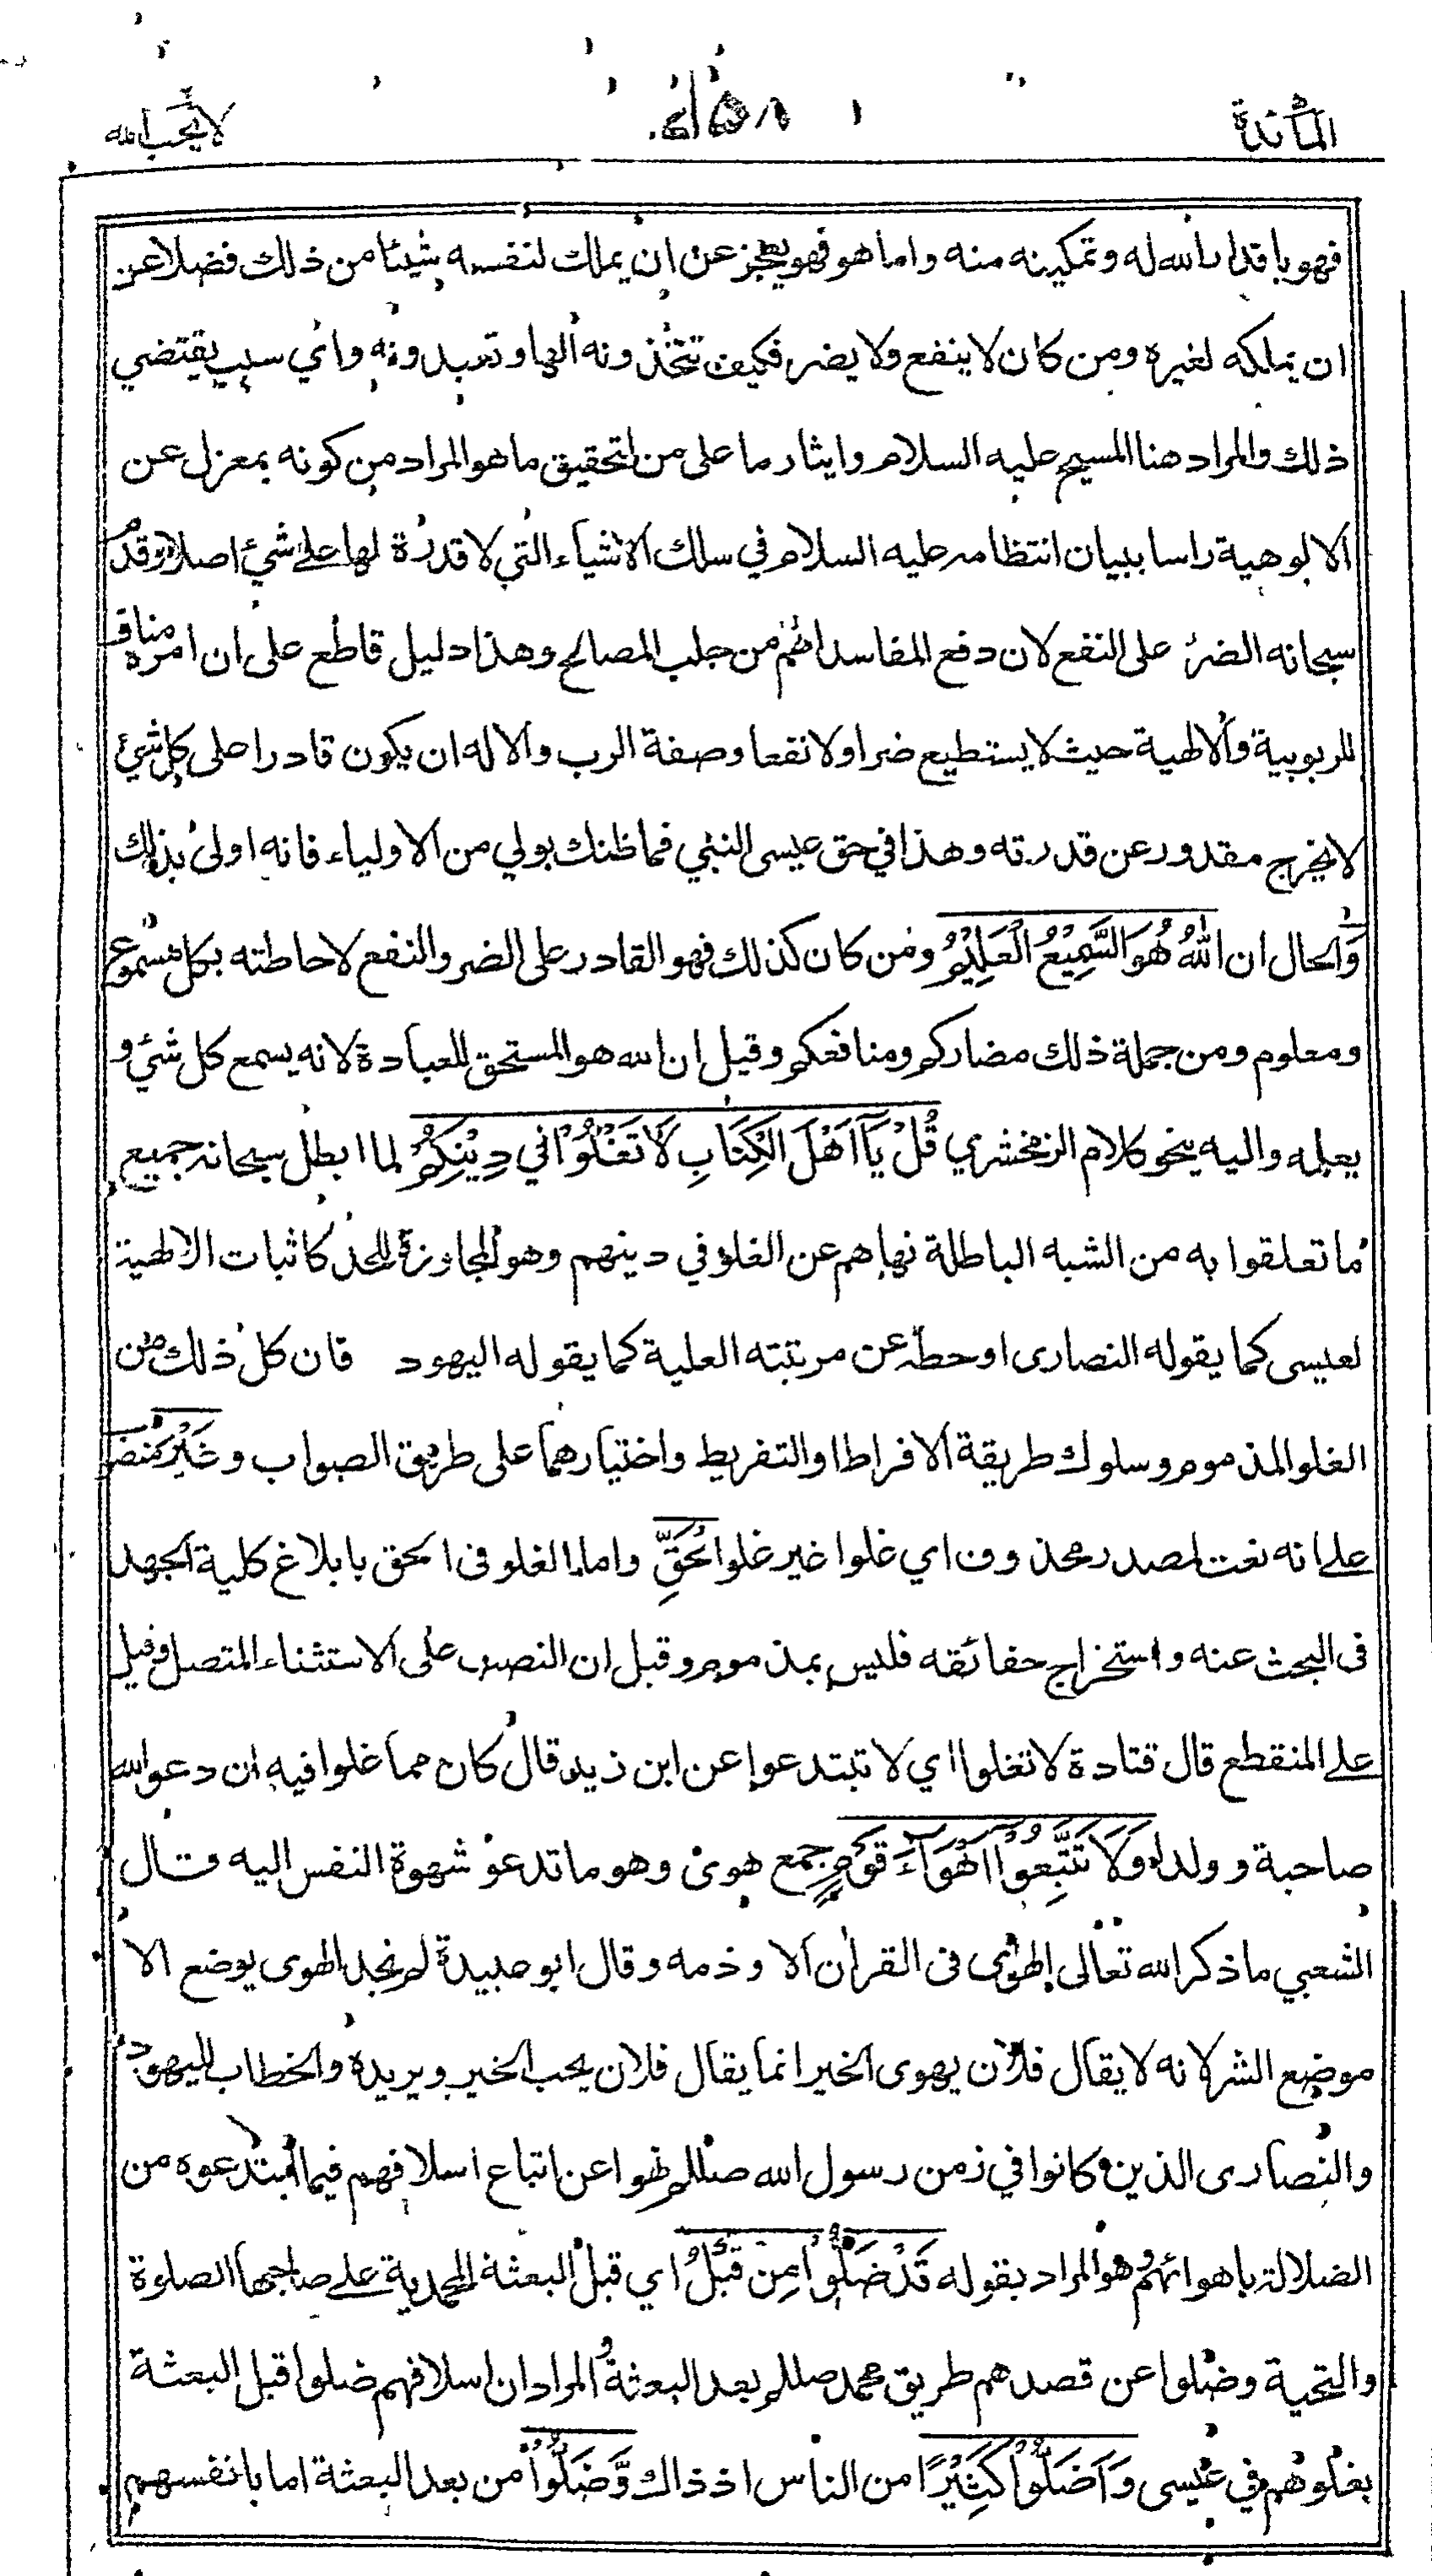 المآئدة ٥٨١ لا يحب الله
فهو باقدار الله له وتمكينه منه واما هو فهو يعجز عن ان يملك لنفسه شيئا من ذلك فضلا عن
ان يملكه لغيره ومن كان لا ينفع ولا يضر فكيف تتخذونه الها وتعبدونه واي سبب يقتضي
ذلك والمراد هنا المسيح عليه السلام وايثار ما على من لتحقيق ما هو المراد من كونه بمعزل عن
الالوهية راسا ببيان انتظامه عليه السلام في سلك الاشياء التي لا قدرة لها على شئ اصلا وقدم
سبحانه الضر على النفع لان دفع المفاسد اهم من جلب المصالح وهذا دليل قاطع على ان امره مناف
للربوبية والالهية حيث لا يستطيع ضرا ولا نفعا وصفة الرب والاله ان يكون قادرا على كل شئ
لا يخرج مقدور عن قدرته وهذا في حق عيسى النبي فما ظنك بولي من الاولياء فانه اولى بذلك
وَالحال ان اللّٰهُ هُوَ السَّمِيْعُ الْعَلِيْمُ ومن كان كذلك فهو القادر على الضر والنفع لاحاطته بكل مسموع
ومعلوم ومن جملة ذلك مضاركم ومنافعكم وقيل ان الله هو المستحق للعبادة لانه يسمع كل شئ و
يعلمه واليه ينحو كلام الزمخشري قُلْ يَآ اَهْلَ الْكِتَابِ لَا تَغْلُوْا فِي دِيْنِكُمْ لما ابطل سبحانه جميع
ما تعلقوا به من الشبه الباطلة نهاهم عن الغلو في دينهم وهو المجاوزة للحد كاثبات الالهية
لعيسى كما يقوله النصارى او حطه عن مرتبته العلية كما يقوله اليهود فان كل ذلك من
الغلو المذموم وسلوك طريقة الافراط او التفريط واختيارهما على طريق الصواب وغَيْرَ منصوب
على انه نعت لمصدر محذوف اي غلوا غير غلو الْحَقِّ واما الغلو فى الحق بابلاغ كلية الجهد
فى البحث عنه واستخراج حقائقه فليس بمذموم وقيل ان النصب على الاستثناء المتصل وقيل
على المنقطع قال قتادة لا تغلوا اي لا تبتدعوا عن ابن زيد قال كان مما غلوا فيه ان دعوا لله
صاحبة وولدا وَلَا تَتَّبِعُوْا اَهْوَآءَ قَوْمٍ جمع هوى وهو ما تدعو شهوة النفس اليه قال
الشعبي ما ذكر الله تعالى الهوى فى القران الا وذمه وقال ابو عبيدة لم نجد الهوى يوضع الا
موضع الشر لانه لا يقال فلان يهوى الخير انما يقال فلان يحب الخير ويريده والخطاب لليهود
والنصارى الذين كانوا في زمن رسول الله صللم نهوا عن اتباع اسلافهم فيما ابتدعوه من
الضلالة باهوائهم وهو المراد بقوله قَدْ ضَلُّوْا مِنْ قَبْلُ اي قبل البعثة المحمدية على صاحبها الصلوة
والتحية وضلوا عن قصدهم طريق محمد صللم بعد البعثة والمراد ان اسلافهم ضلوا قبل البعثة
بغلوهم في عيسى وَاَضَلُّوْا كَثِيْرًا من الناس اذ ذاك وَّضَلُّوْا من بعد البعثة اما بانفسهم